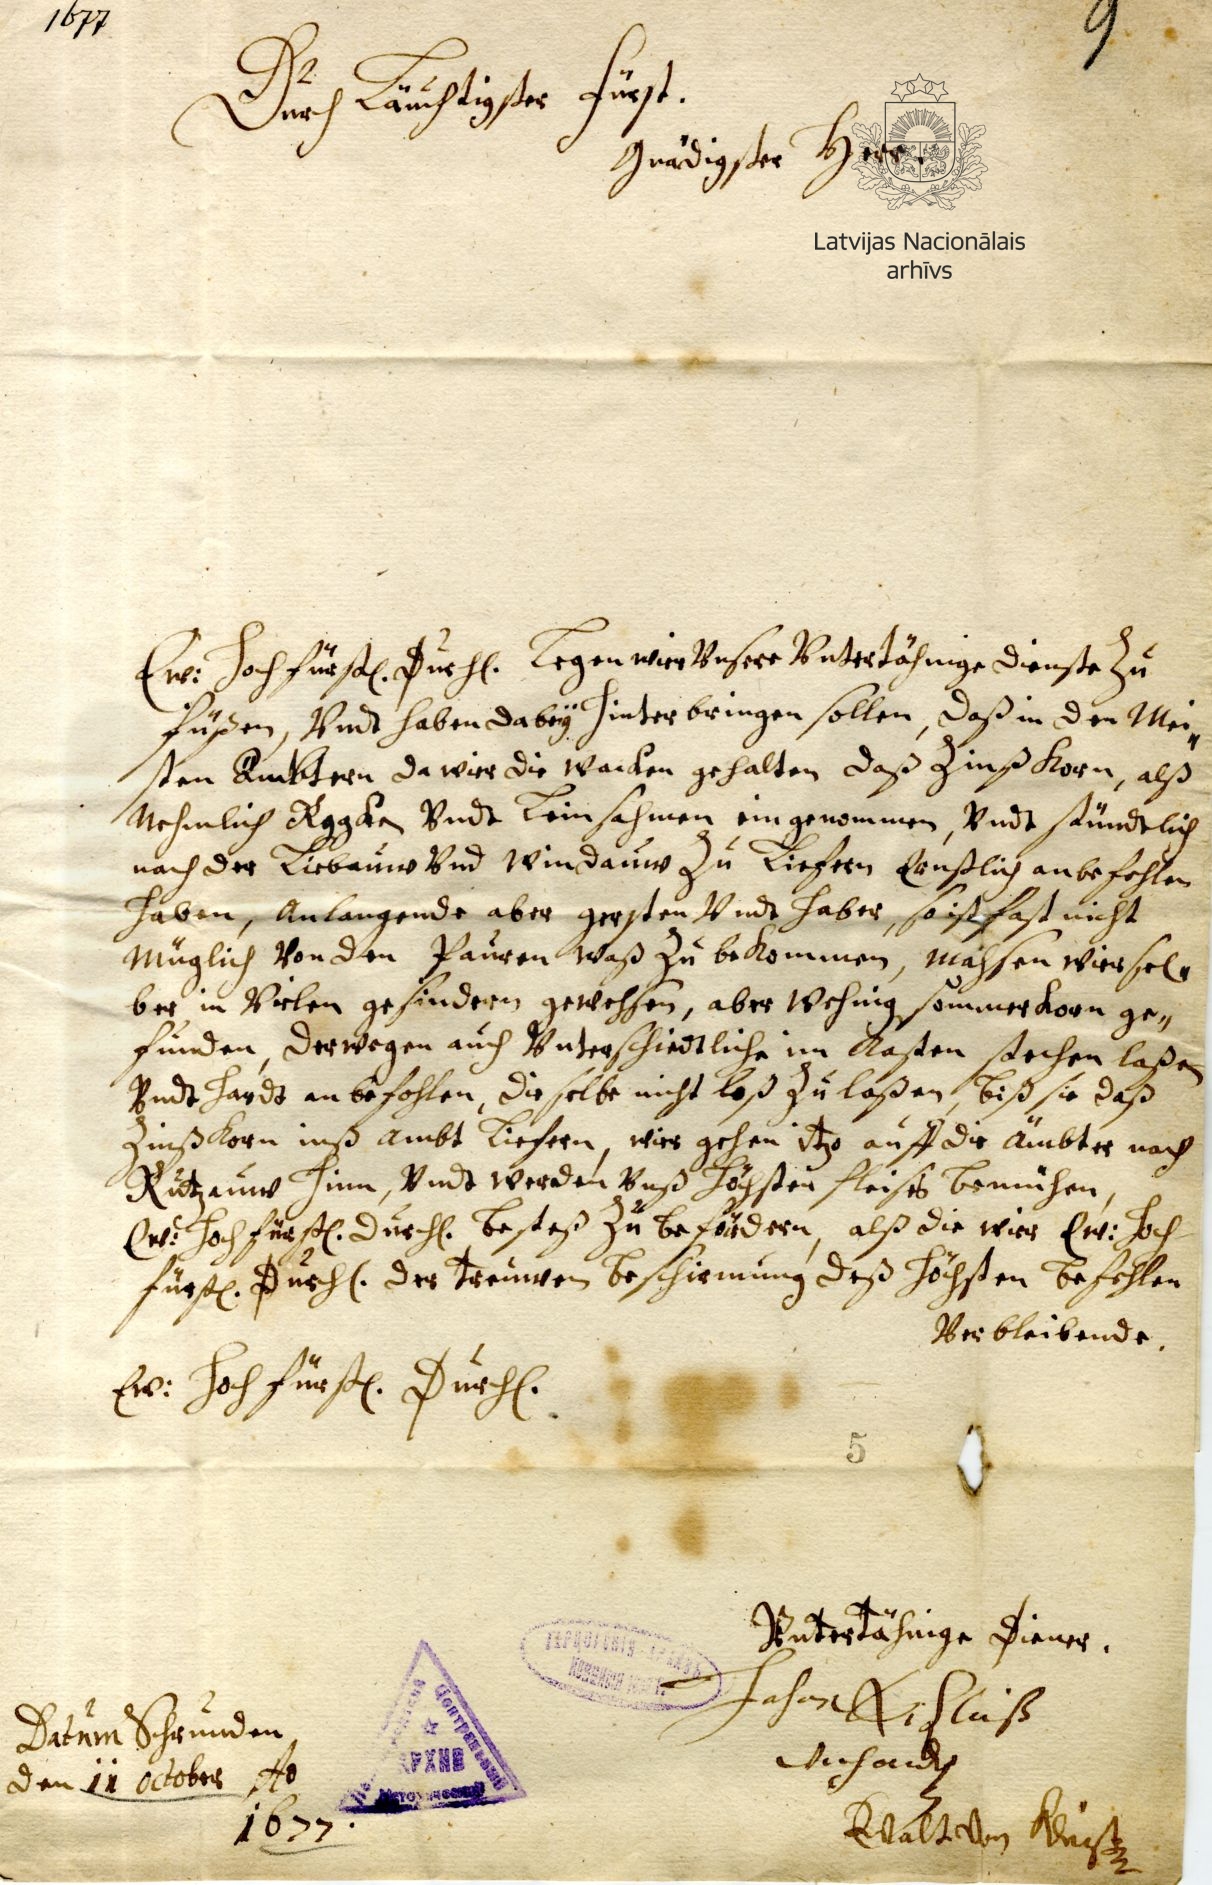 1677
9
Durch Läuchtigster Fürst.
Gnädigster Herr.
Latvijas Nacionālais
arhīvs
Ew: Hochfürstl. Durchl. Legen wier Vnsere Vntertähnige dienste Zu
füßen, Vndt haben dabeÿ hinterbringen sollen, daß in den Mei„
sten Ämbtern da wier die wacken gehalten daß Zinß Korn, alß
Nehmlich Roggen Vndt Leinsahmen eingenommen, Vndt stündtlich
nach der Liebauw Vnd Windauw Zu Liefern Ernstlich anbefohlen
haben, Anlangende aber gersten Vndt haber, so ist fast nicht
Müglich Von den Pauren waß Zu bekommen, mahssen wier sel„
ber in Vielen gesindern gewehssen, aber wehnig sommerkorn ge„
funden, derwegen auch Vnterschiedtliche im Kasten stechen laßen
Vndt hardt anbefohlen, dieselbe nicht loß Zu laßen, biß sie daß
Zinß Korn inß Ambt Liefern, wier gehen itzo auff die Ämbter nach
Rutzauw hinn, Vndt werden Vnß höchsten fleises bemühen,
Ew: Hochfürstl. Durchl. bestes Zu befördern, alß die wier Ew: Hoch-
fürstl. Durchl. der treuwen beschirmung deß Höchsten befehlen
Verbleibende.
Ew: Hochfürstl. Durchl.
5
Vntertähnige Diener.
Johan
Ewalt Von
Datum Schrunden
den 11 October Ao
1677.
АРХИВ
Центральный
Исторический